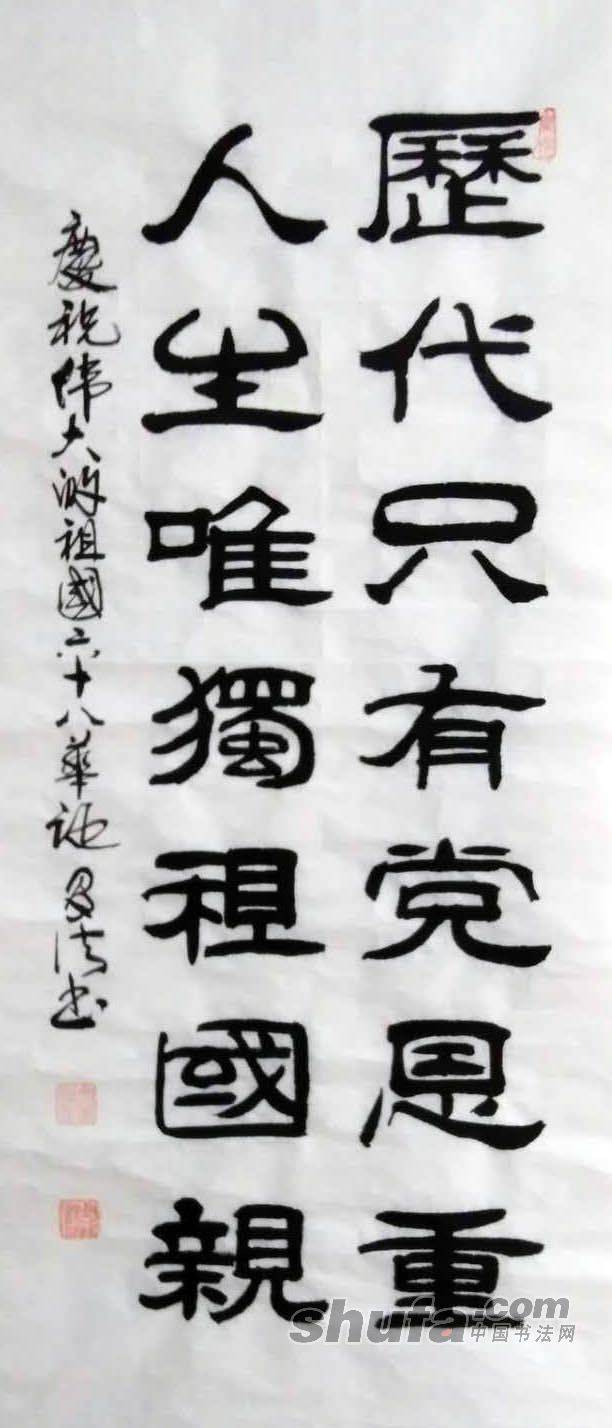 歷代只有党恩重
人生唯獨祖國親
慶祝伟大的祖國六十八華诞
shufa.com
中国书法网